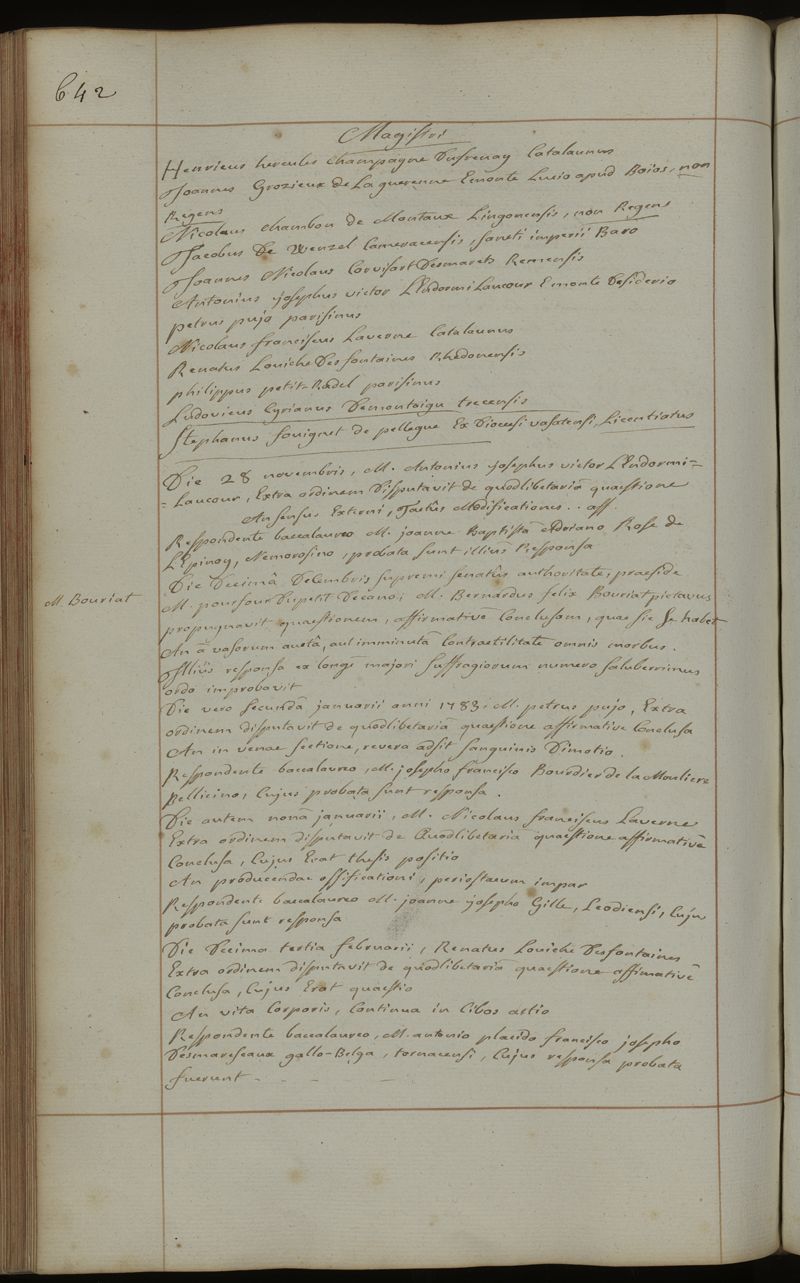 642
Magistri
Henricus hercules Champagne Dufrenay Catalaunus
Joannes Grozieux de Laguerenne Emonte Lucio apud Boios, non
Regens
Nicolaus Chambon de Montaux Lingonensis, non Regens
Jacobus De Wenzel Cameracensis, sancti imperii Baro
Joannes Nicolaus Corvisart Desmarets Remensis
Antonius josephus victor LEndormi Laucour Emonte Desiderio
petrus pujo parisinus
Nicolaus franciscus Laverne Catalaunus
Renatus Louiche Desfontaines Rhedonensis
philippus petit-Radel parisinus
Ludovicus Cyrianus Demontaigu trecensis
Stephanus Souignet de pellegue Ex Diocesi vasatensi, Licentiatus
Die 28 novembris, M. Antonius josephus victor LEndormi=
=Laucour, Extra ordinem Disputavit de quodlibetariâ quaestione
An sensus Externi, Tactûs Modificationes . . aff.
Respondente baccalaureo M. joanne Baptistâ Adriano Rose de
LEpinoy, Nemorosino, probata sunt illius Responsa
Die Decimâ Decembris supremi senatûs authoritate, praeside
M. Bouriat
M. pourfour Dupetit Decano; M. Bernardus felix Bouriat pictavus
propugnavit quaestionem, affirmativè Conclusam, quae sic se habet
An â vasorum auctâ, aut imminutâ Contractilitate omnis morbus.
Illius responsa ex longè majori suffragiorum numero saluberrimus
ordo improbavit
Die vero secundâ januarii anni 1783. M. petrus pujo, Extra
ordinem disputavit de quodlibetariâ quaestione affirmative Conclusa
An in venae sectione, revera adsit sanguinis Dimotio.
Respondente baccalaureo, M. josepho francisco Bourdier de la Mouliere
Bellicino, Cujus probata sunt responsa.
Die autem nonâ januarii, M. Nicolaus franciscus Laverne
Extra ordinem disputavit de Quodlibetariâ quaestione affirmativè
Conclusa, Cujus Erat thesis positio
An producendae ossificationi, periostaeum impar
Respondente baccalaureo M. joanne josepho Gille, Leodiensi, Cujus
probata sunt responsa
Die Decima tertia februarii, Renatus Louiche Desfontaines
Extra ordinem disputavit de quodlibetariâ quaestione affimativè
Conclusa, Cujus Erat quaestio
An vita Corporis, Continua in Cibos actio
Respondente baccalaureo, M. antonio placido francisco josepho
Desmareseaux gallo-Belga, tornacensi, Cujus responsa probata
fuerunt - - -